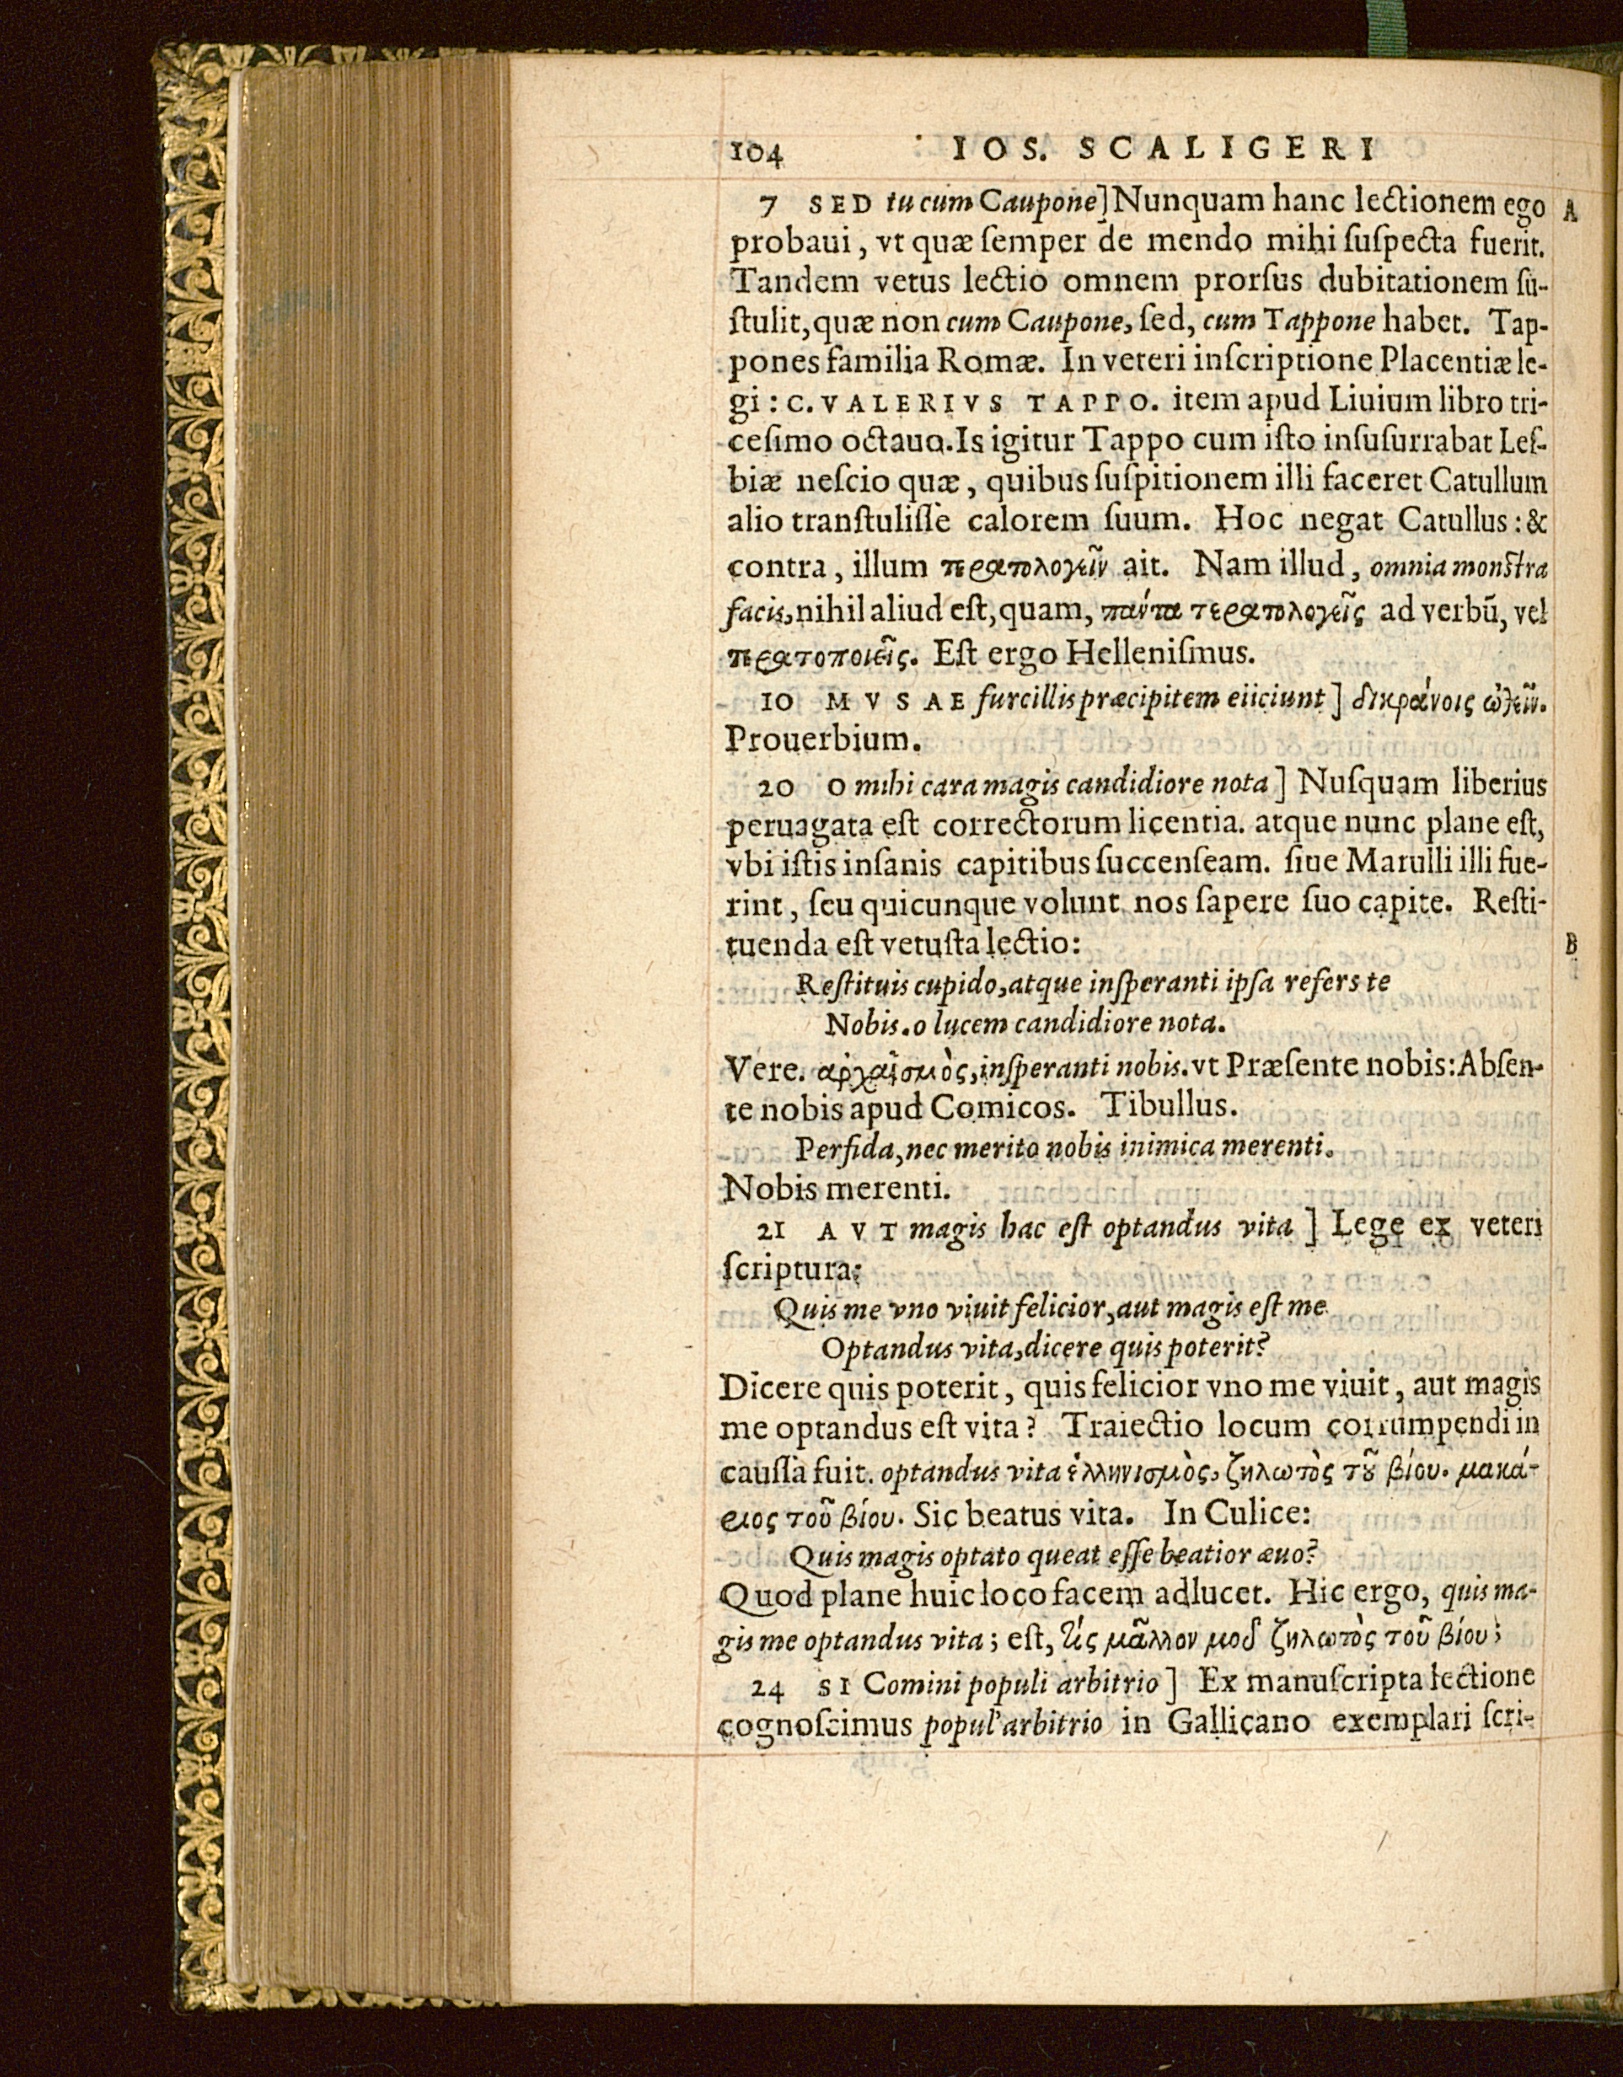 104 IOS. SCALIGERI
7 SED tu cum Caupone] Nunquam hanc lectionem ego A
probaui, vt quæ ſemper de mendo mihi ſuſpecta fuerit.
Tandem vetus lectio omnem prorſus dubitationem ſu-
ſtulit, quæ non cum Caupone, ſed, cum Tappone habet. Tap-
pones familia Romæ. In veteri inſcriptione Placentiæ le-
gi: C. VALERIVS TAPPO. item apud Liuium libro tri-
ceſimo octauo. Is igitur Tappo cum iſto inſuſurrabat Leſ-
biæ neſcio quæ, quibus ſuſpitionem illi faceret Catullum
alio tranſtuliſſe calorem ſuum. Hoc negat Catullus: &
contra, illum τερατολογεῖν ait. Nam illud, omnia monſtra
facis, nihil aliud eſt, quam, πάντα τερατολογεῖς ad verbū, vel
τερατοποιεῖς. Eſt ergo Helleniſmus.
10 MVSAE furcillis præcipitem eiiciunt] δικράνοις ὠθεῖν.
Prouerbium.
20 O mihi cara magis candidiore nota] Nuſquam liberius
peruagata eſt correctorum licentia. atque nunc plane eſt,
vbi iſtis inſanis capitibus ſuccenſeam. ſiue Marulli illi fue-
rint, ſeu quicunque volunt nos ſapere ſuo capite. Reſti-
tuenda eſt vetuſta lectio: B
Reſtituis cupido, atque inſperanti ipſa refers te
Nobis. o lucem candidiore nota.
Vere. ἀρχαϊσμὸς, inſperanti nobis. vt Præſente nobis: Abſen-
te nobis apud Comicos. Tibullus.
Perfida, nec merito nobis inimica merenti.
Nobis merenti.
21 AVT magis hac eſt optandus vita] Lege ex veteri
ſcriptura:
Quis me vno viuit felicior, aut magis eſt me
Optandus vita, dicere quis poterit?
Dicere quis poterit, quis felicior vno me viuit, aut magis
me optandus eſt vita? Traiectio locum corrumpendi in
cauſſa fuit. optandus vita ἑλληνισμὸς, ζηλωτὸς τοῦ βίου. μακά-
ριος τοῦ βίου. Sic beatus vita. In Culice:
Quis magis optato queat eſſe beatior æuo?
Quod plane huic loco facem adlucet. Hic ergo, quis ma-
gis me optandus vita; eſt, τίς μᾶλλον μοῦ ζηλωτὸς τοῦ βίου;
24 SI Comini populi arbitrio] Ex manuſcripta lectione
cognoſcimus popul' arbitrio in Gallicano exemplari ſcri-